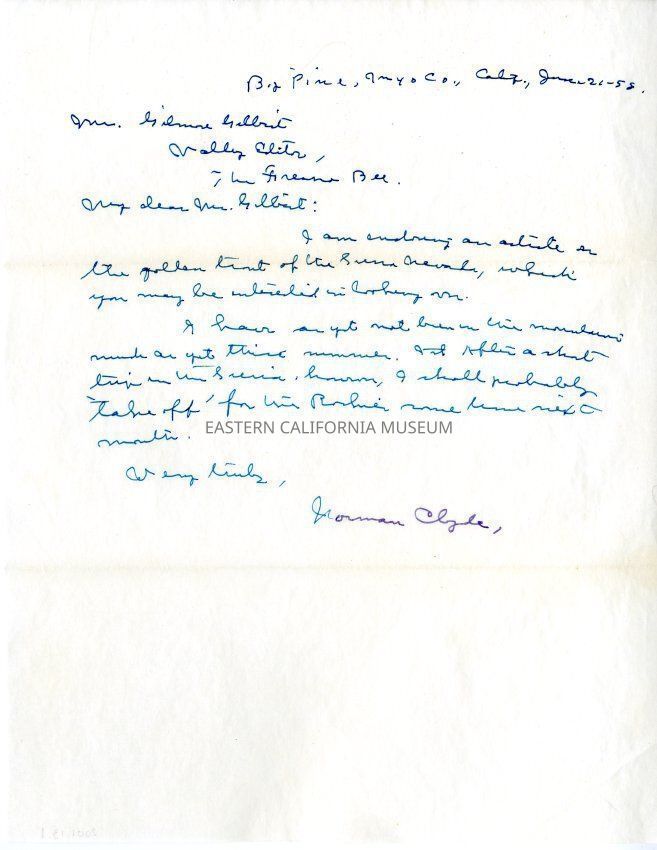 Big Pine, Inyo Co., Calif., June 21-58.
Mr. Gilmore Gilbert
Valley Editor,
The Fresno Bee.
My dear Mr. Gilbert:
I am enclosing an article on
the golden trout of the Sierra Nevada, which
you may be interested in looking over.
I have as yet not been in the mountains
much as yet this summer. After a short
trip in the Sierra, however, I shall probably
"take off" for the Rockies some time next
month.
Very truly,
Norman Clyde,
EASTERN CALIFORNIA MUSEUM
2001.15.1